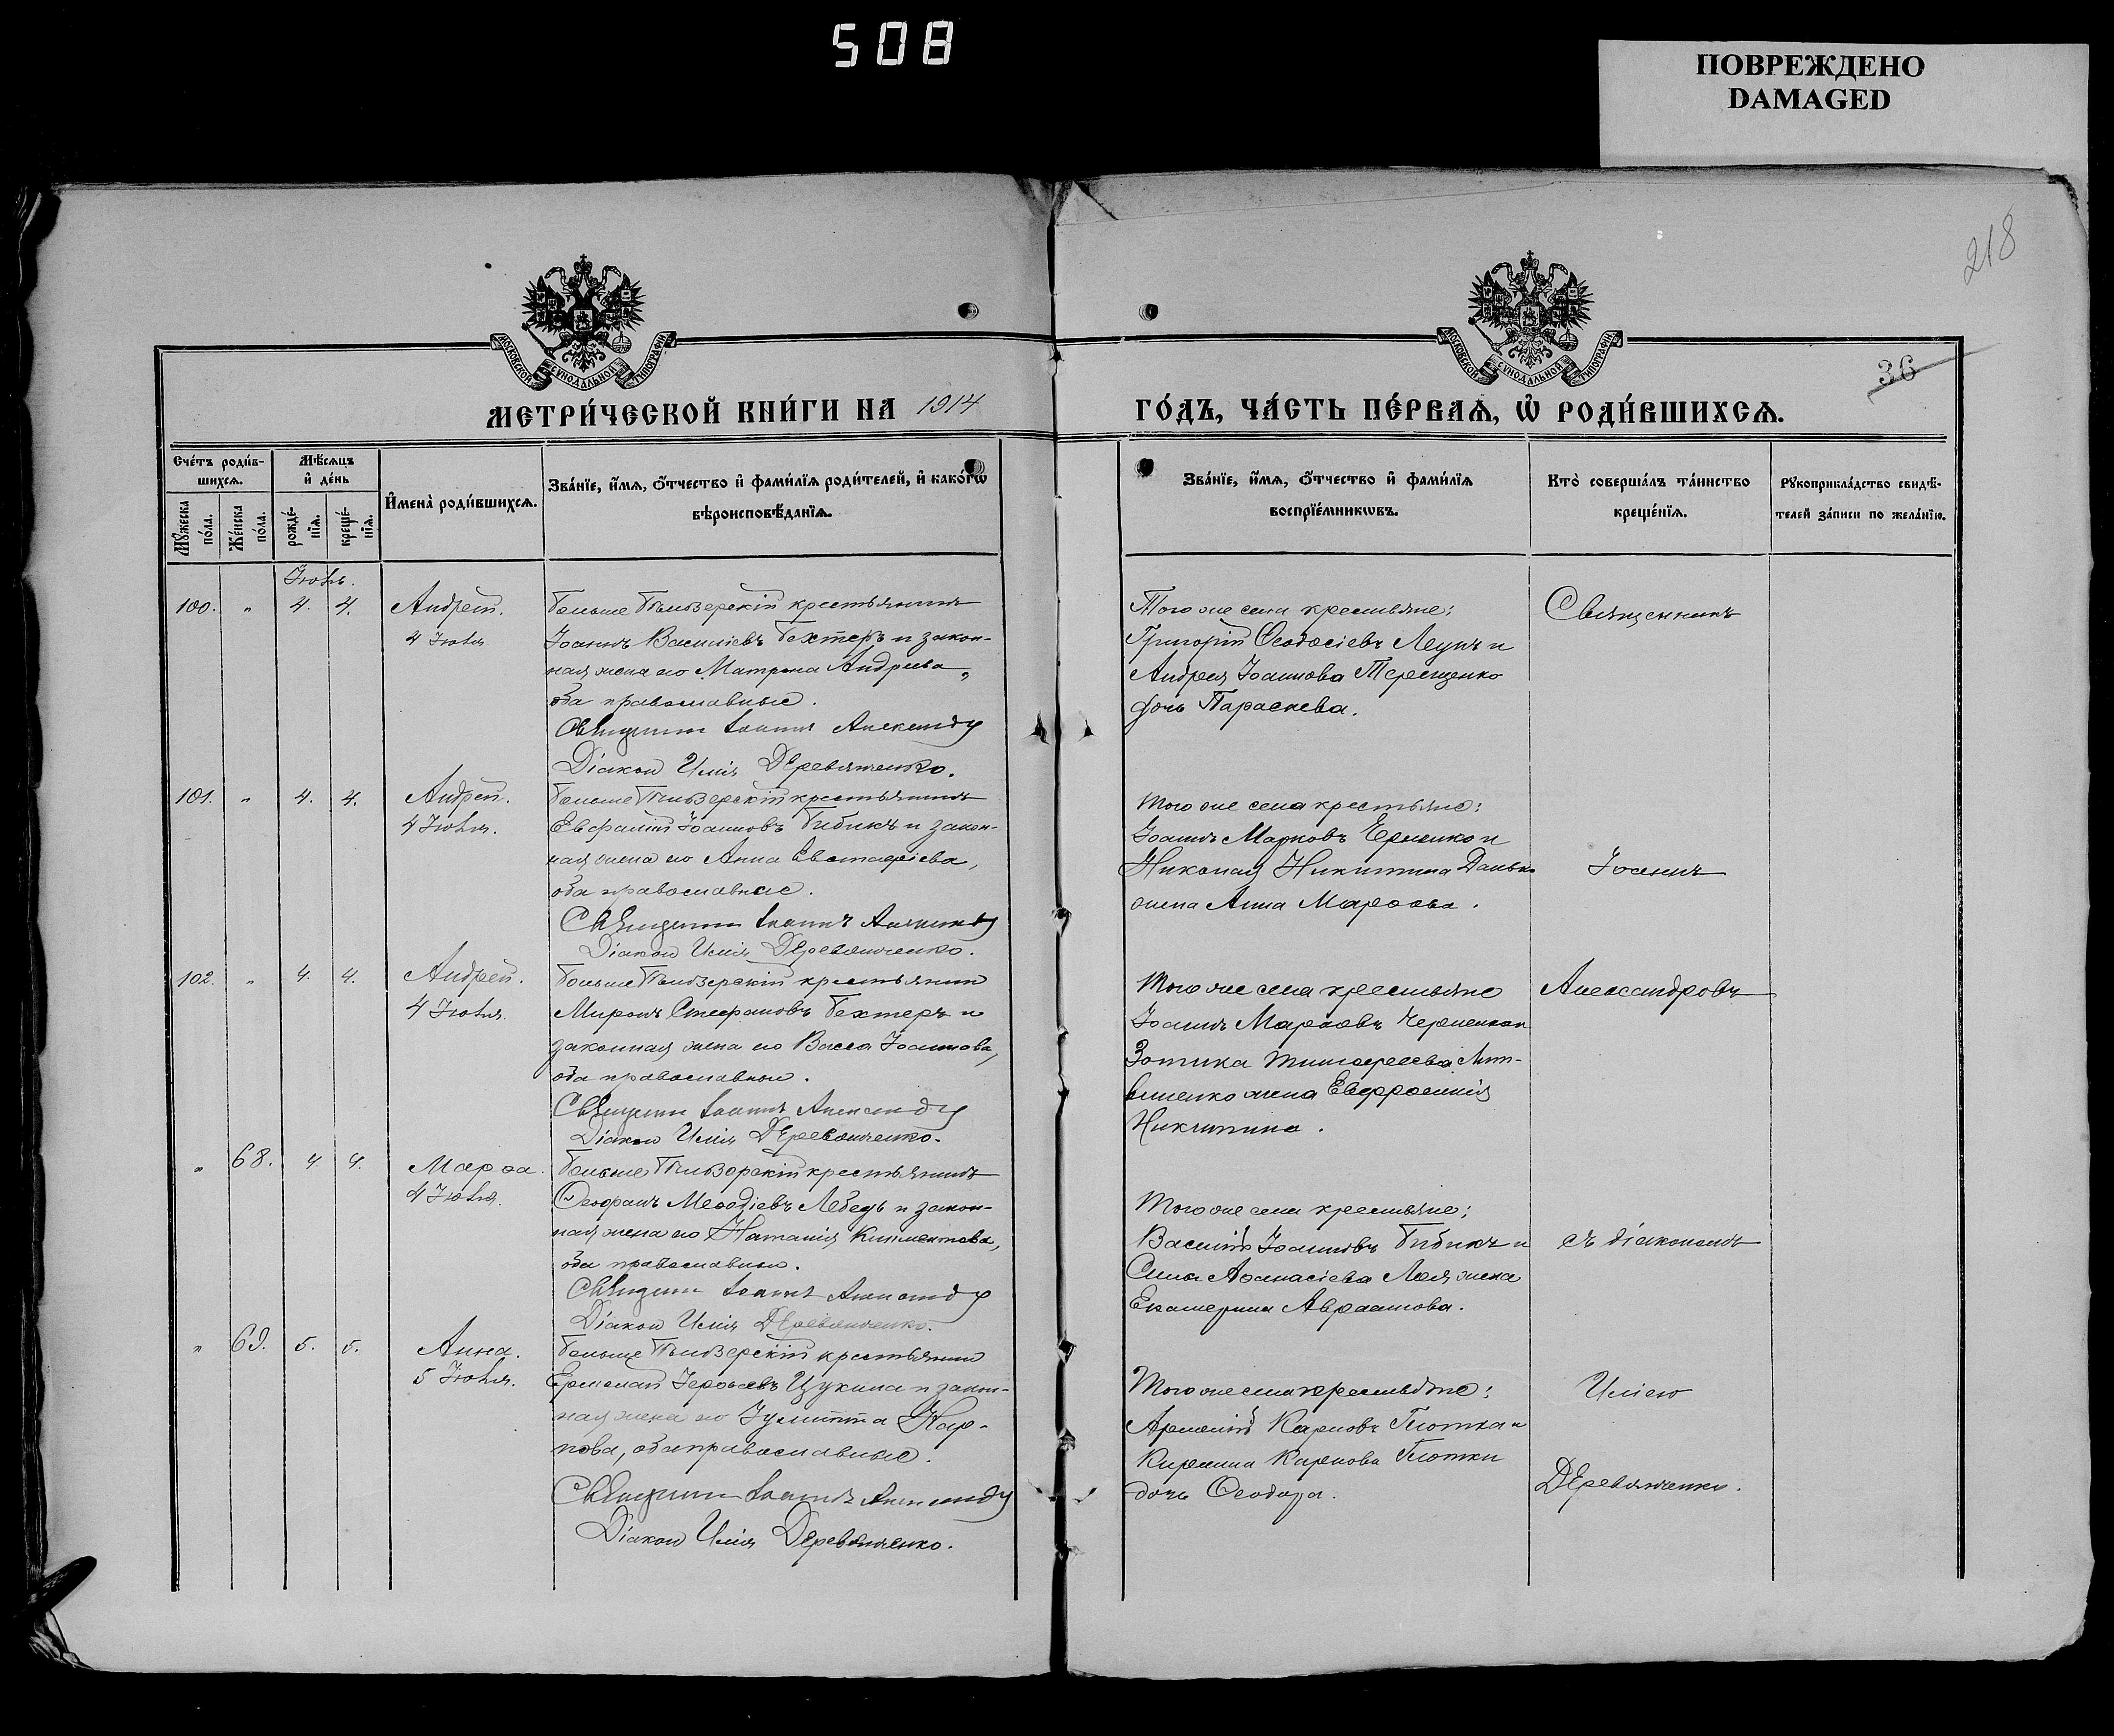 508
ПОВРЕЖДЕНО
DAMAGED
218
36
МОСКОВСКОЙ СѴНОДАЛЬНОЙ ТИПОГРАФІИ
МОСКОВСКОЙ СѴНОДАЛЬНОЙ ТИПОГРАФІИ
МЕТРИ́ЧЕСКОЙ КНИ́ГИ НА 1914
ГО́ДЪ, ЧА́СТЬ ПЕ́РВАѦ, Ѡ҆ РОДИ́ВШИХСѦ.
Сче́тъ роди́в-
шихсѧ.
Мꙋ́жеска по́ла.
Же́нска по́ла.
Мѣ́сѧцъ
и҆ де́нь
рожде́-
нїѧ.
креще́-
нїѧ.
И҆мена̀ роди́вшихсѧ.
Зва́нїе, и҆́мѧ, ѻ҆́тчество и҆ фами́лїѧ роди́телей, и҆ како́гѡ
вѣроисповѣ́данїѧ.
Зва́нїе, и҆́мѧ, ѻ҆́тчество и҆ фами́лїѧ
воспрїе́мникѡвъ.
Кто̀ соверша́лъ та́инство
креще́нїѧ.
Рꙋкоприкла́дство свидѣ́-
телей за́писи по жела́нїю.
Іюль.
100. " 4. 4. Андрей.
4 Іюля
крестьянинъ
Іоаннъ Василіевъ Бехтеръ и закон-
ная жена его Матрона Андреева,
оба православные.
Священникъ Іоаннъ Александр
Діаконъ Илія Деревянченко.
Того же села крестьяне:
Григорій Ѳеодосіевъ Лецъ и
Андрея Іоаннова Терещенко
дочь Параскева.
Священникъ
101. " 4. 4. Андрей.
4 Іюля.
крестьянинъ
Іоанновъ Бибикъ и закон-
ная жена его Анна Евстафіева,
оба православные.
Священникъ Іоаннъ Александр
Діаконъ Илія Деревянченко.
Того же села крестьяне:
Іоаннъ Марковъ и
Николая Никитина Данько
жена Анна Маркова.
Іоаннъ
102. " 4. 4. Андрей.
4 Іюля.
крестьянинъ
Миронъ Стефановъ Бехтеръ и
законная жена его Васса Іоаннова,
оба православные.
Священникъ Іоаннъ Александр
Діаконъ Илія Деревянченко.
Того же села крестьяне
Іоаннъ Марковъ
Зотика Тимофеева Лит-
виненко жена Евфросинія
Никитина.
Александровъ
" 68. 4. 4. Марѳа.
4 Іюля.
крестьянинъ
Ѳеофанъ Меѳодіевъ Лебедь и закон-
ная жена его Наталія Климентова,
оба православные.
Священникъ Іоаннъ Александр
Діаконъ Илія Деревянченко.
Того же села крестьяне:
Василій Іоанновъ Бибикъ и
Силы Аѳанасіева жена
Екатерина Авраамова.
съ діакономъ
" 69. 5. 5. Анна.
5 Іюля.
крестьянинъ
Ермолай и закон-
ная жена его Іулитта Кар-
пова, оба православные.
Священникъ Іоаннъ Александр
Діаконъ Илія Деревянченко.
Того же села крестьяне:
Карповъ Плотка и
Карпова Плотки
дочь Ѳеодора.
Иліею
Деревянченко.